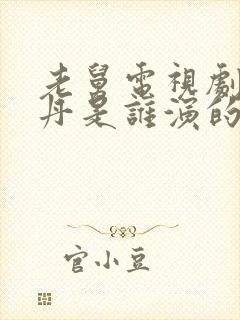 老舅電視劇
丹是誰演的
官小豆